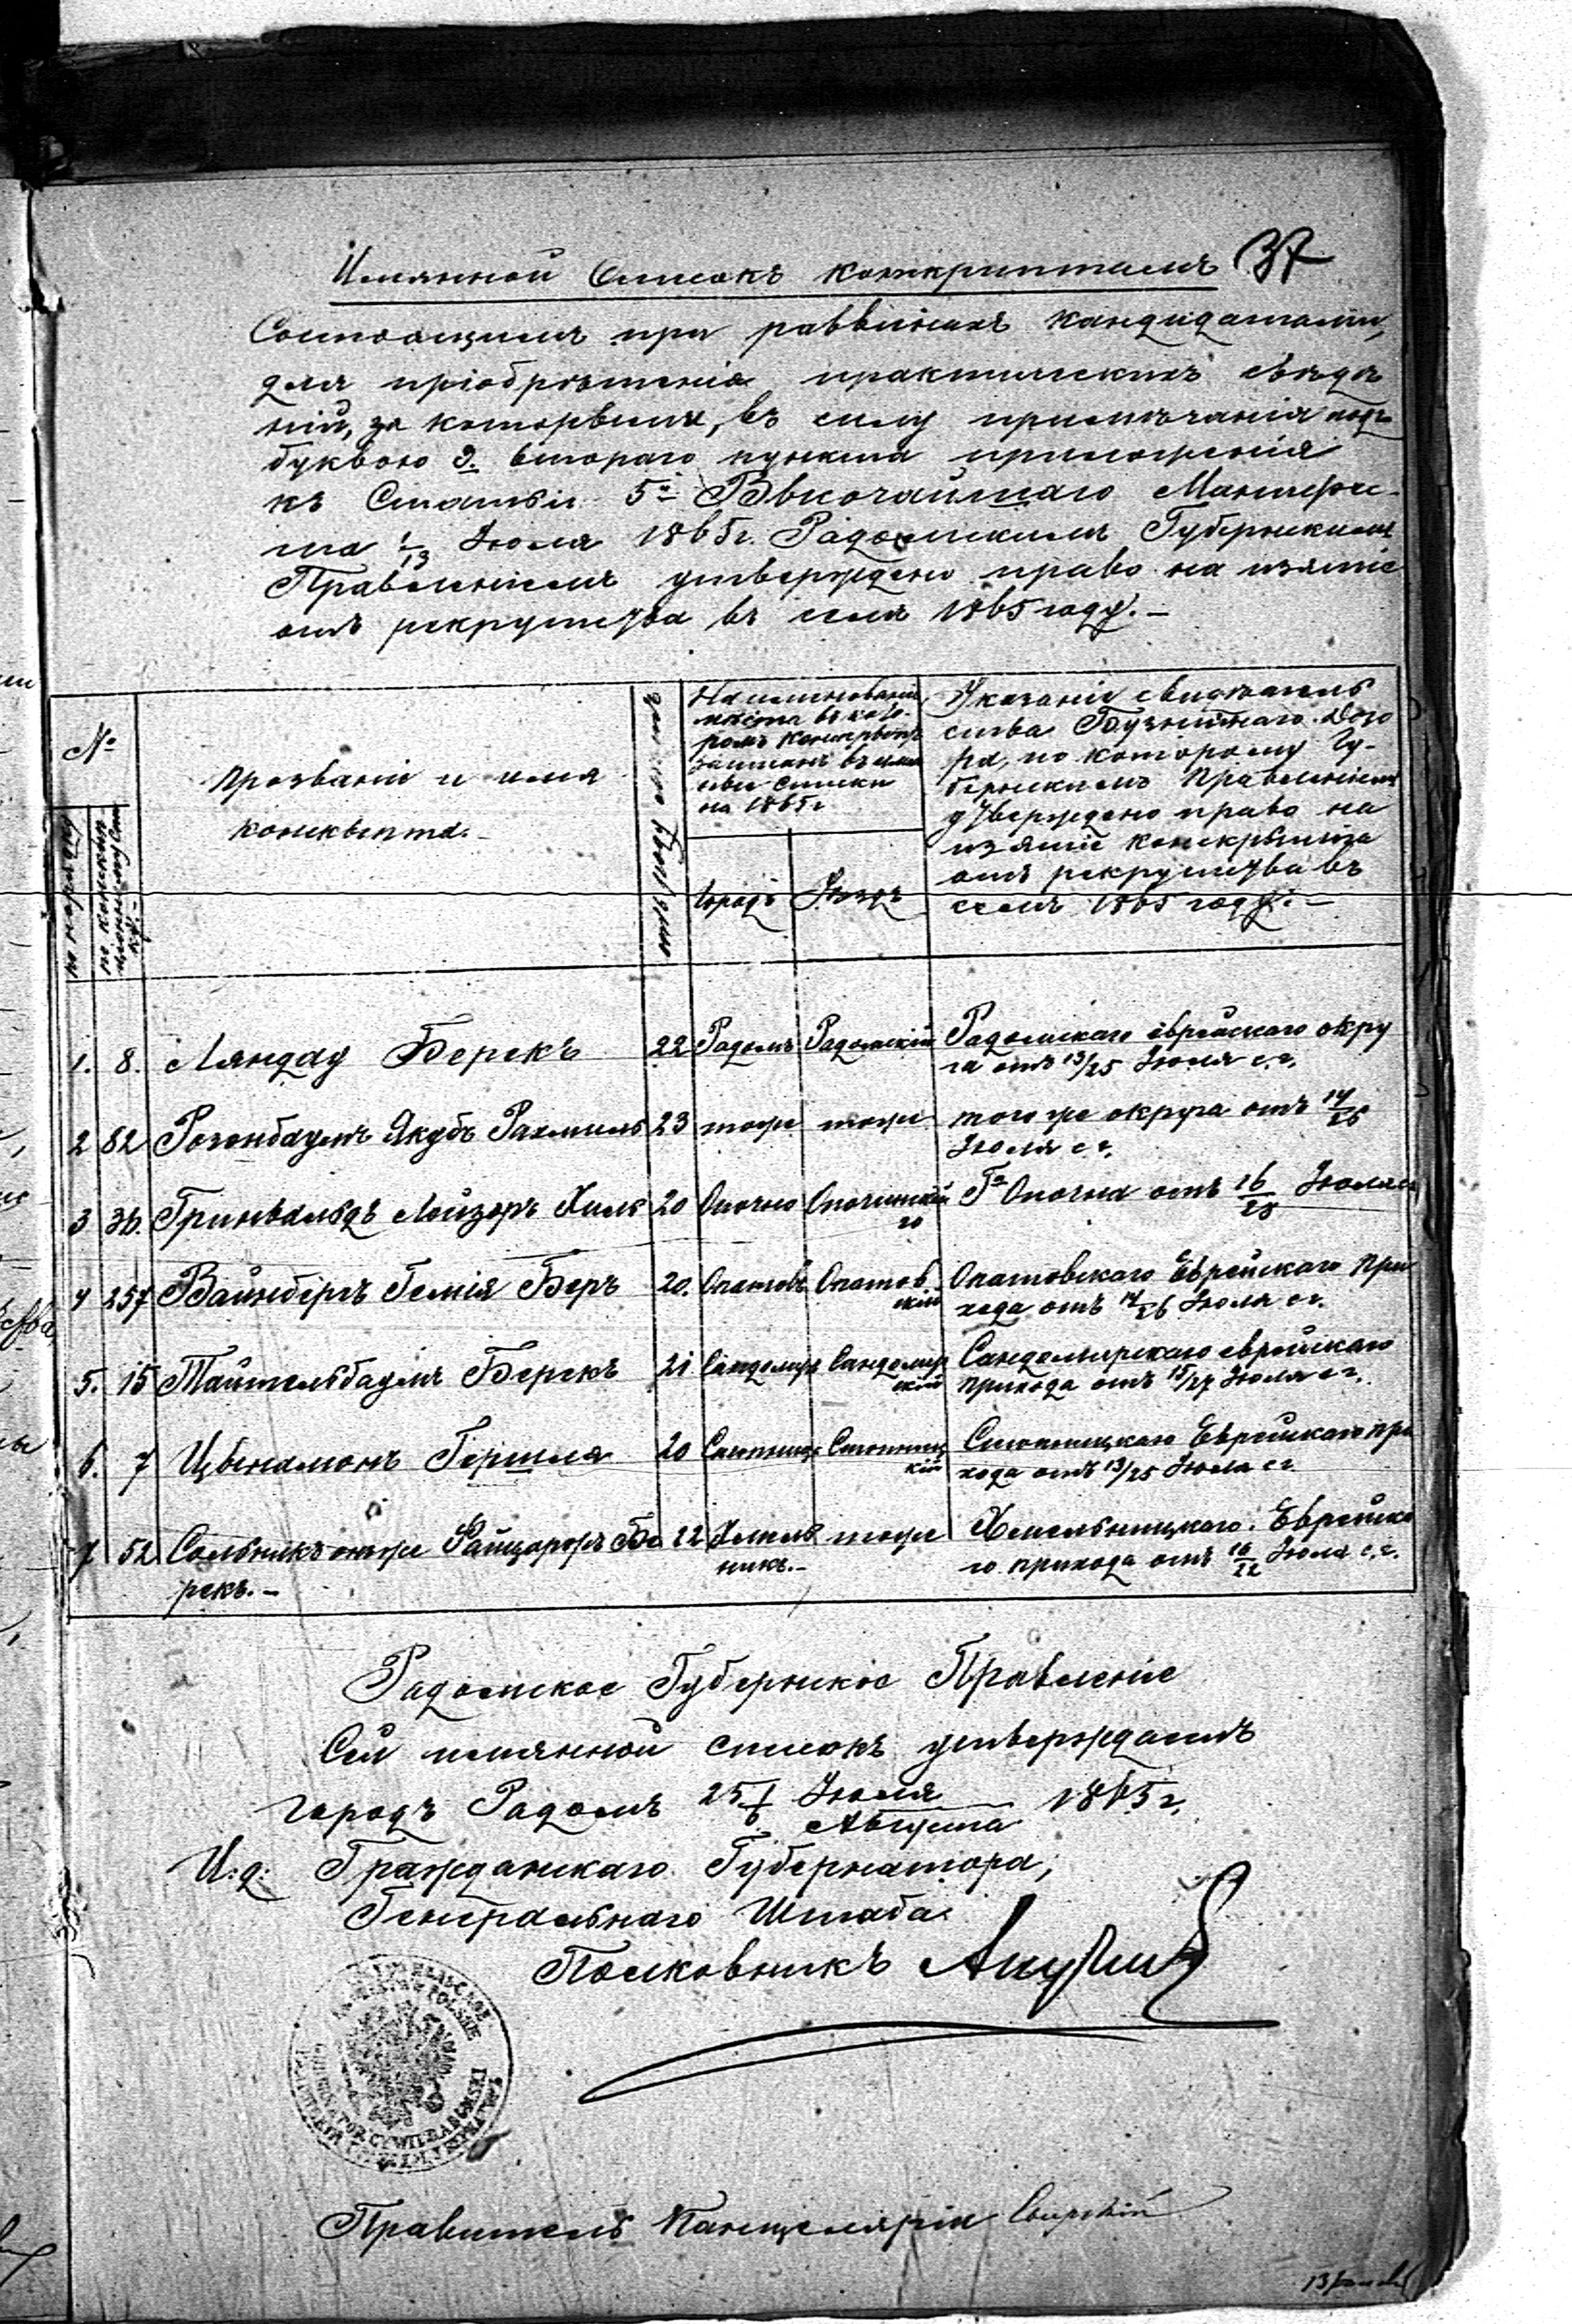 Имянной Списокъ конскриптамъ 37
Состоящимъ при раввинахъ кандидатами,
для пріобрѣтенія практическихъ свѣдѣ
ній, за которыми, въ силу примѣчанія подъ
буквою д. втораго пункта приложенія
къ Статьи 5й Высочайшаго Манифес-
та 1/13 Іюля 1865 г. Радомскимъ Губернскимъ
Правленіемъ утверждено право на изятіе
отъ рекрутства въ семъ 1865 году. –
№
по порядку
по конскрип
ціонному спи
ску
Прозваніе и имя
конскрыпта. –
Наименованіе
мѣста въ кото-
ромъ конскрыптъ
записанъ въ имян
ные списки
на 1865 г
Городъ Уѣздъ
Указаніе свидѣтель
ства Бужничнаго Дозо
ра, по которому Гу-
бернскимъ Правленіемъ
утверждено право на
изятіе конскрыпта
отъ рекрутства въ
семъ 1865 году. –
1. 8. Ляндау Берекъ 22 Радомъ Радомскій Радомскаго еврейскаго окру
га отъ 13/25 Іюля с. г.
2 82 Розенбаумъ Якубъ Рахмиль 23 тоже тоже того же округа отъ 14/26
Іюля с. г.
3 36. Гринвальдъ Лейзоръ Хиль 20 Опочно Опочинскій Гª Опочна отъ 16/28 Іюля
4 257 Вайнбергъ Гемія Беръ 20. Опатовъ Опатов
скій Опатовскаго Еврейскаго при
хода отъ 14/26 Іюля с г.
5. 15 Тайтельбаумъ Берекъ 21 Сандомиръ Сандомир
скій Сандомирскаго еврейскаго
прихода отъ 15/27 Іюля с г.
6. 7 Цвенамонъ Гершля 20 Стопница Стопниц
кій Стопницкаго Еврейскаго при
хода отъ 13/25 Іюля с г.
7 52 Сольникъ онъже Берекъ. – 22 Хмель
никъ. – тоже Хмельницкаго Еврейска
го прихода отъ Іюля с. г.
Радомское Губернское Правленіе
Сей имянной списокъ утверждаетъ
городъ Радомъ 25/6 Іюля/Августа 1865 г.
И. д. Гражданскаго Губернатора,
Генеральнаго Штаба
Полковникъ
Правитель Канцеляріи